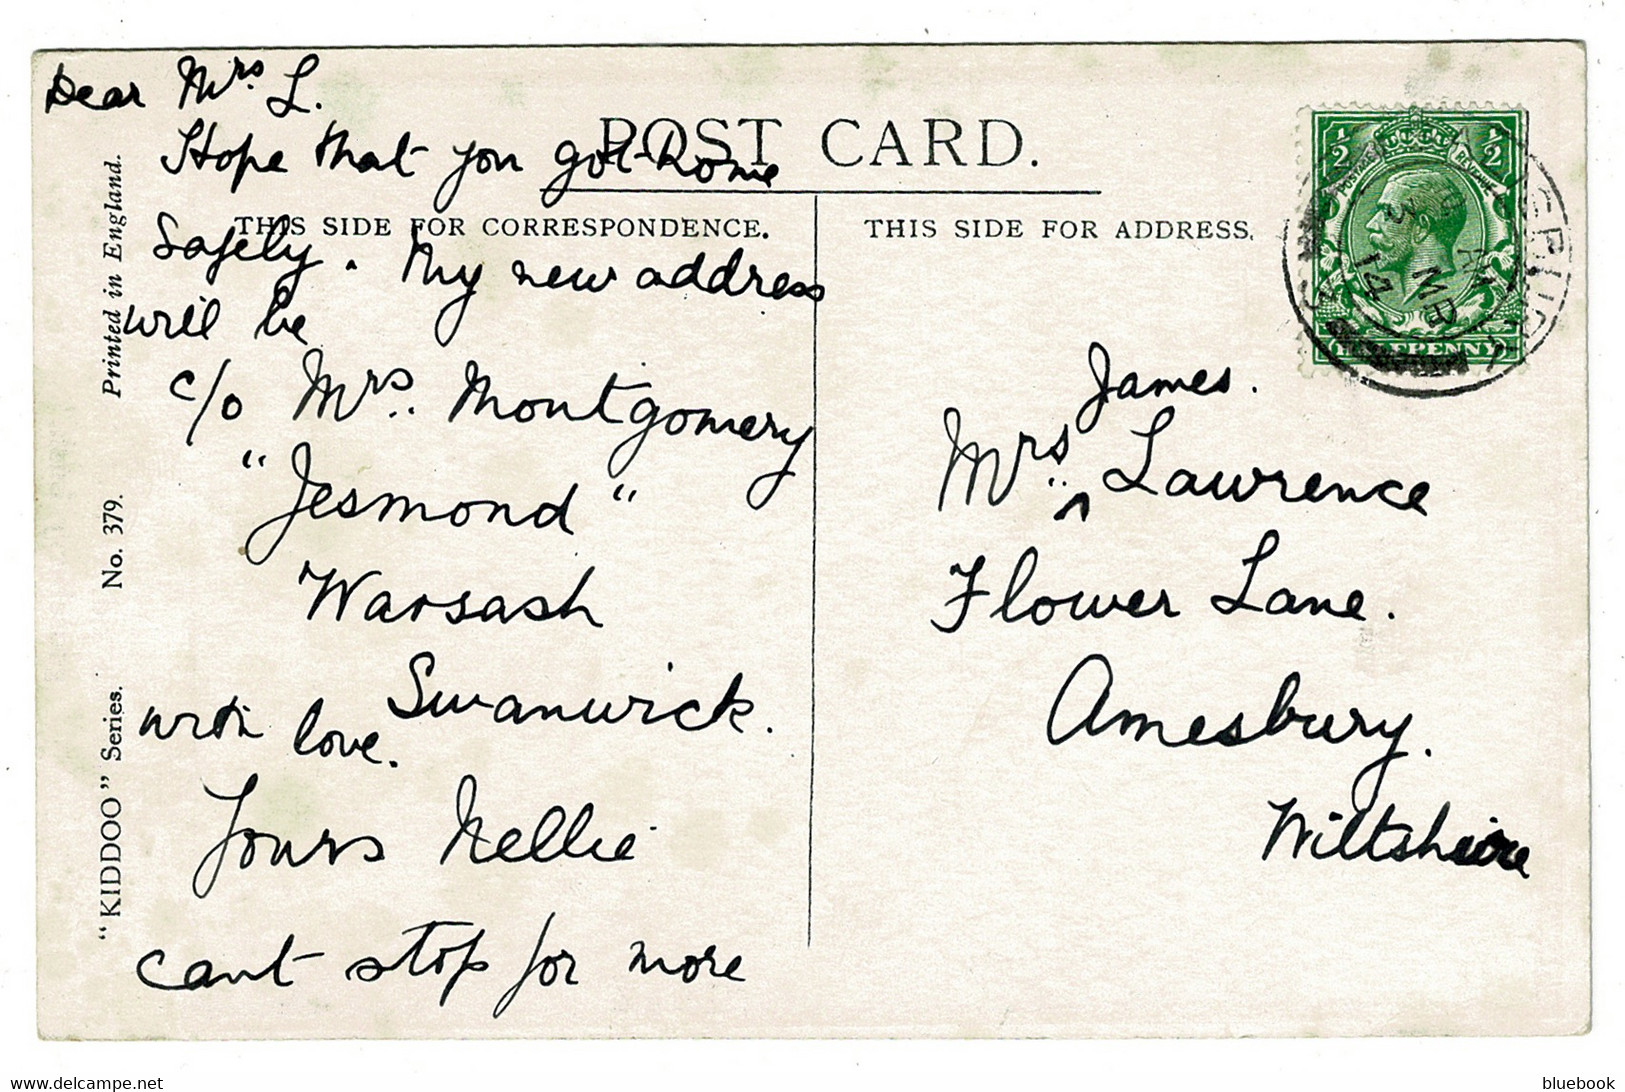 Dear Mrs. L.
Hope that you got home
Safely. My new address
will be
c/o Mrs. Montgomery
"Jesmond"
Warsash
Swanwick.
with love.
Yours Nellie
cant stop for more
POST CARD.
THIS SIDE FOR CORRESPONDENCE.
THIS SIDE FOR ADDRESS.
"KIDDOO" Series. No. 379. Printed in England.
James.
Mrs. ^ Lawrence
Flower Lane.
Amesbury.
Wiltshire
1/2 1/2
POSTAGE REVENUE
HALFPENNY
3 MR
14
bluebook
www.delcampe.net